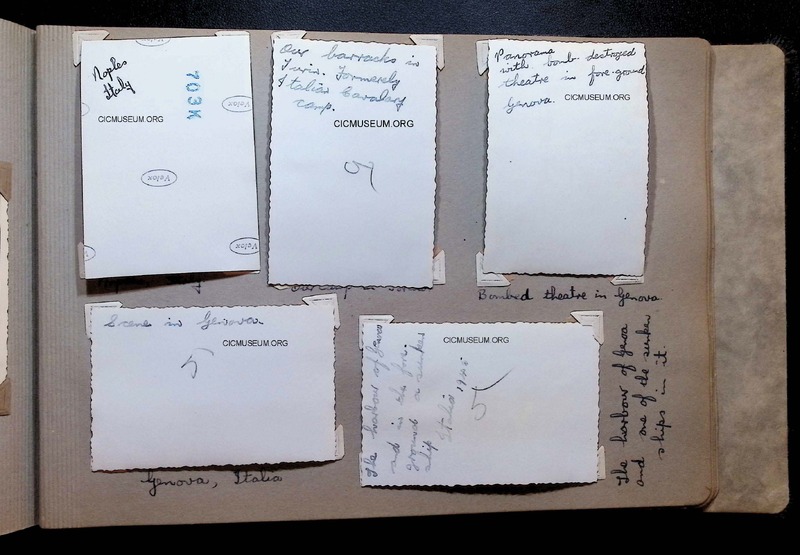 Naples
Italy
703K
CICMUSEUM.ORG
Velox
Velox
Velox
Velox
Our barracks in
Turin. Formerely
Italian Cavalary
camp.
CICMUSEUM.ORG
Panorama
with bomb-destroyed
theatre in fore-ground
Genova.
CICMUSEUM.ORG
Bombed theatre in Genova.
Scene in Genova
CICMUSEUM.ORG
Genova, Italia
CICMUSEUM.ORG
The harbour of Genova
and in the fore-
ground a sunken
ship
Italia 1945
The harbour of Genova
and one of the sunken
ships in it.